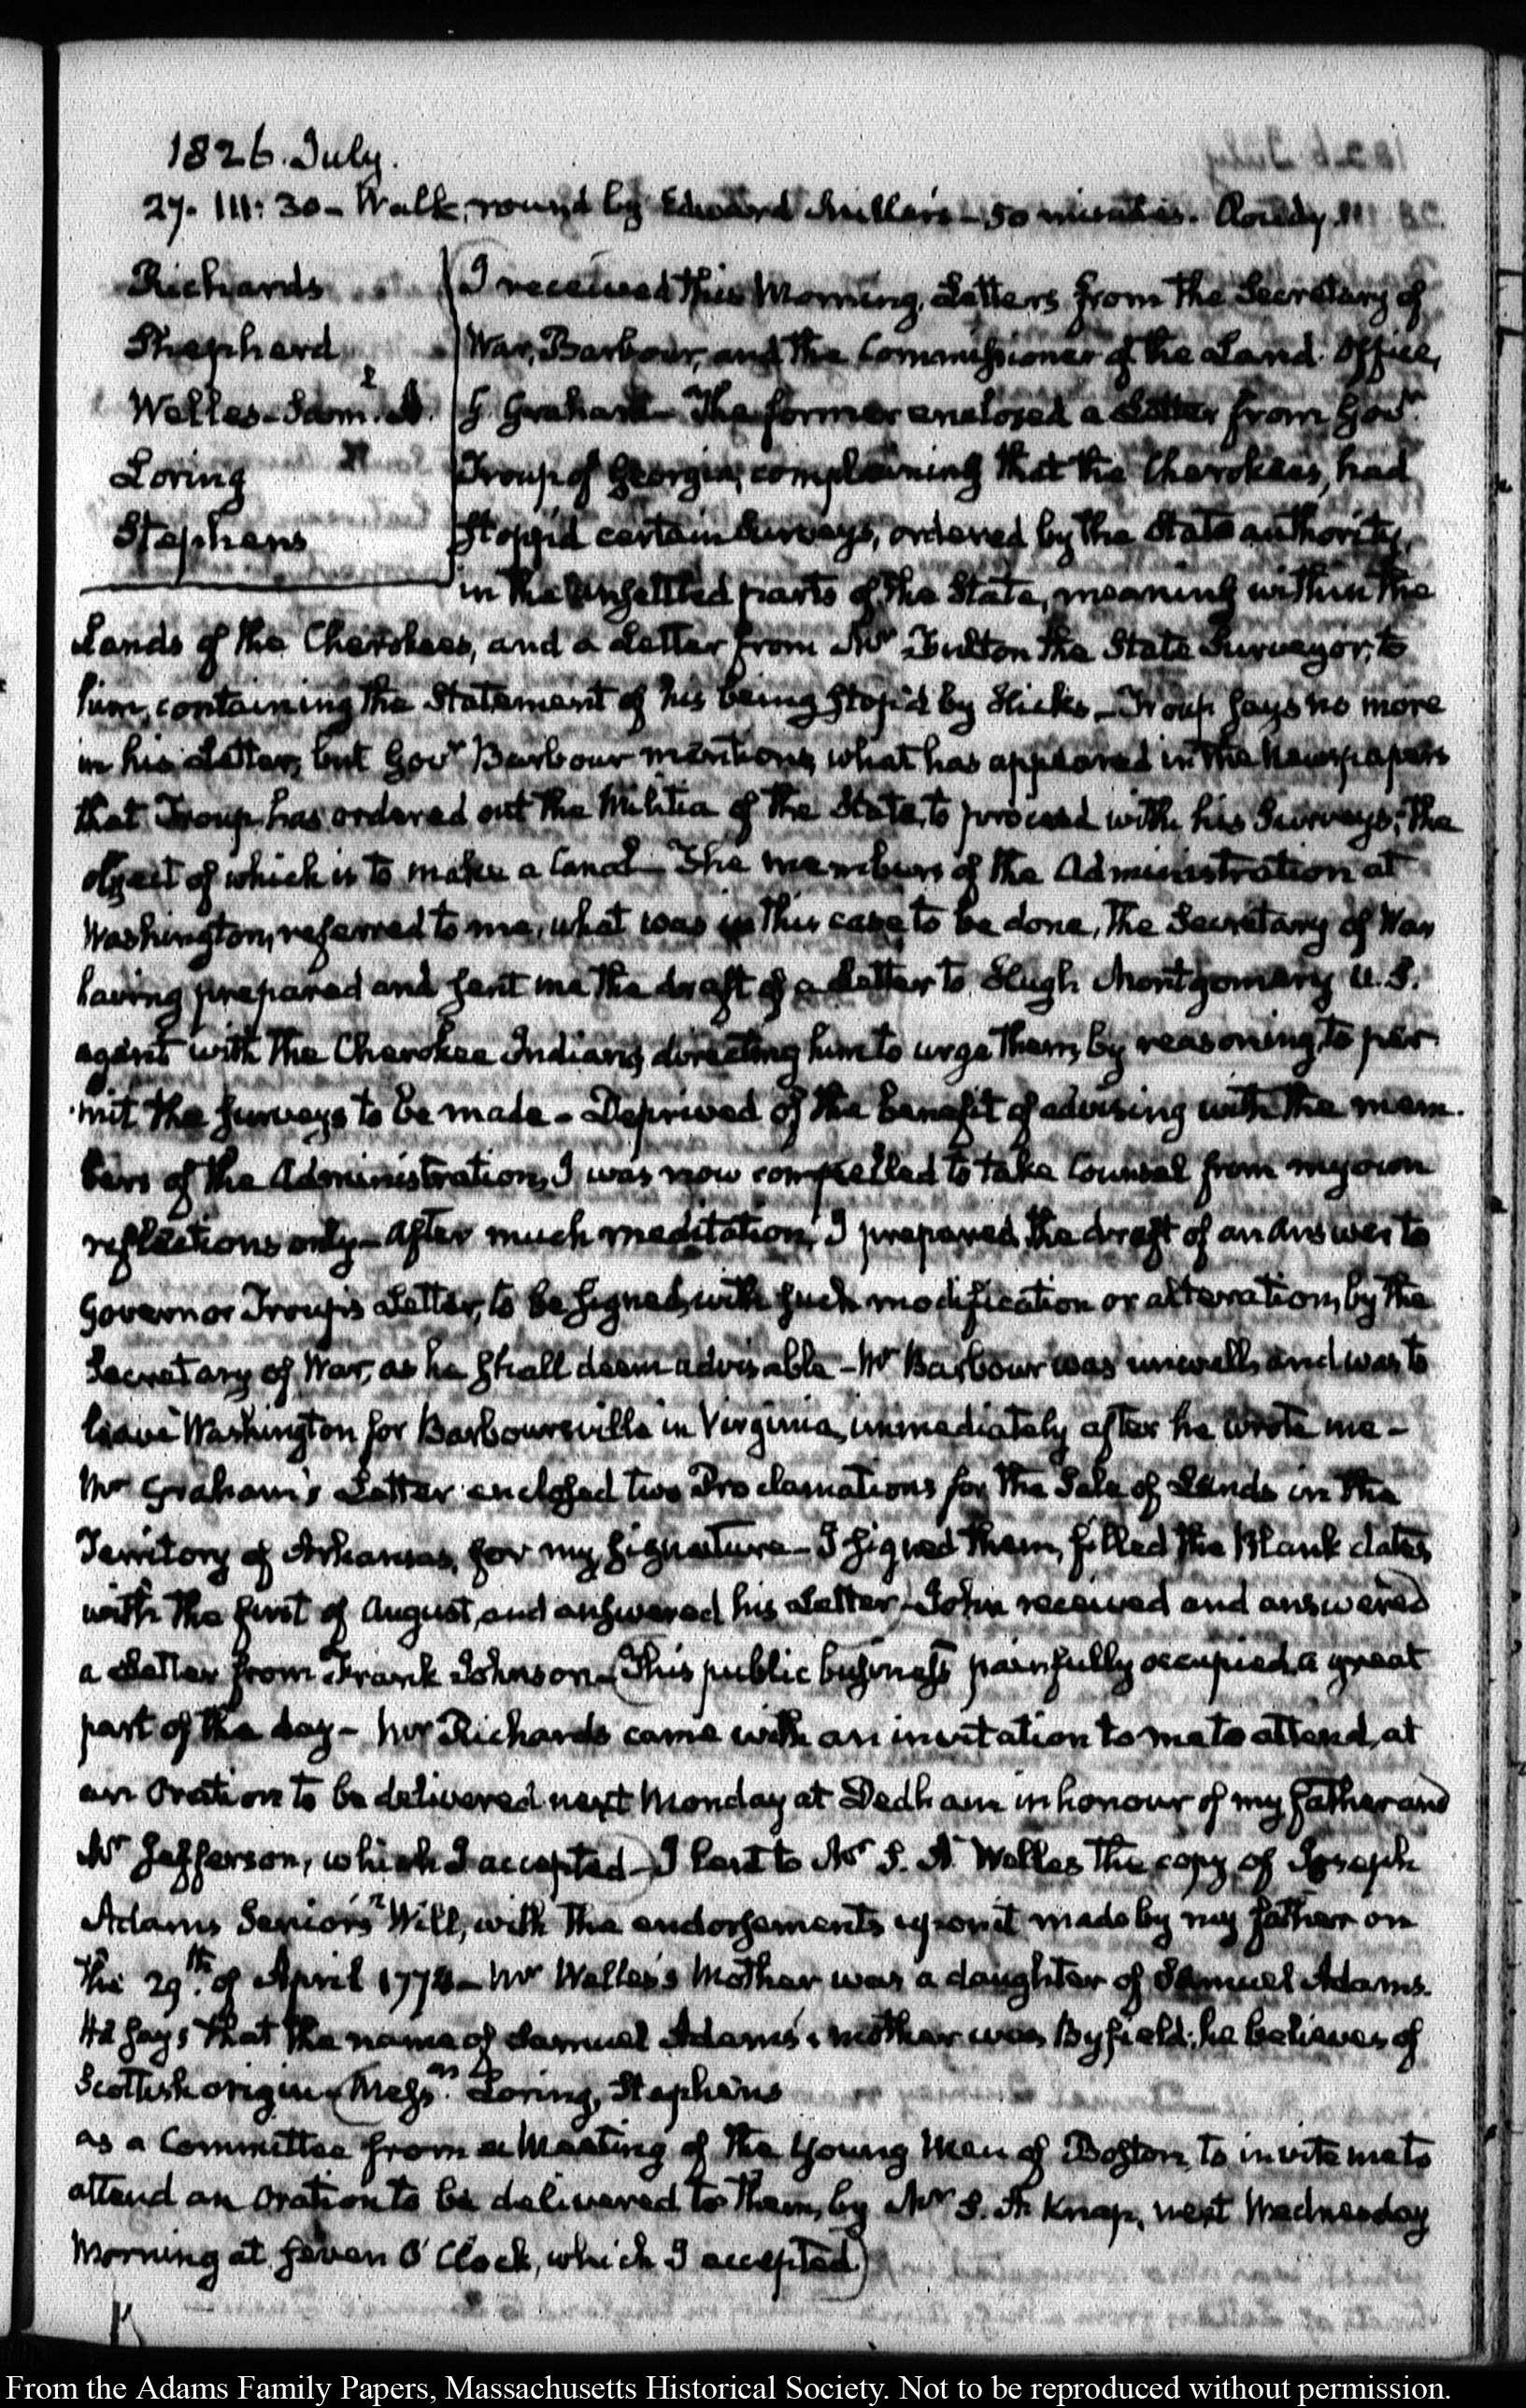 1826. July.
27. III: 30 – Walk, round by Edward Miller's – 50 minutes. Ready.
Richards
Shepherd
Welles – Saml. A.
Loring
Stephens
I received this Morning, Letters from the Secretary of
War, Barbour, and the Commissioner of the Land Office,
G. Graham – The former enclosed a Letter from Govr.
Troup of Georgia, complaining that the Cherokees, had
stopp'd certain Surveys, ordered by the State authority,
in the unsettled parts of the State, meaning within the
Lands of the Cherokees, and a Letter from Mr Fulton the State Surveyor, to
him, containing the Statement of his being stopp'd by Hicks – Troup says no more
in his Letter, but Govr Barbour mentions, what has appeared in the Newspapers
that Troup has ordered out the Militia of the State, to proceed with his Surveys; the
object of which is to make a Canal – The members of the Administration at
Washington, referred to me, what was in this case, to be done, the Secretary of War
having prepared and sent me the draft of a Letter to Hugh Montgomery U.S.
agent with the Cherokee Indians, directing him to urge them, by reasoning, to per
mit the surveys to be made – Deprived of the benefit of advising with the mem-
bers of the Administration, I was now compelled to take Counsel from my own
reflections only – After much meditation, I prepared, the draft of an Answer to
Governor Troup's Letter, to be signed, with such modification or alterations, by the
Secretary of War, as he shall deem advisable – Mr Barbour was unwell, and was to
leave Washington for Barboursville in Virginia, immediately after he wrote me –
Mr Graham's Letter enclosed two Proclamations for the Sale of Lands in the
Territory of Arkansas, for my signature – I signed them, filled the Blank dates
with the first of August, and answered his Letter – John received and answered
a Letter from Frank Johnson – (This public business painfully occupied a great
part of the day – Mr Richards came with an invitation to me to attend, at
an Oration to be delivered next Monday at Dedham in honour of my father and
Mr Jefferson, which I accepted – ) I lent to Mr S. A. Welles the copy of Joseph
Adams Senior's Will, with the endorsements upon it made by my father on
the 29th. of April 1774 – Mr Welles's Mother was a daughter of Samuel Adams.
He says that the name of Samuel Adams's mother was Byfield; he believes of
Scottish origin – (Messrs. Loring, Stephens
as a Committee from a Meeting of the Young Men of Boston, to invite me to
attend an Oration to be delivered to them, by Mr S. L. Knap, next Wednesday
Morning at seven O'Clock, which I accepted)
From the Adams Family Papers, Massachusetts Historical Society. Not to be reproduced without permission.